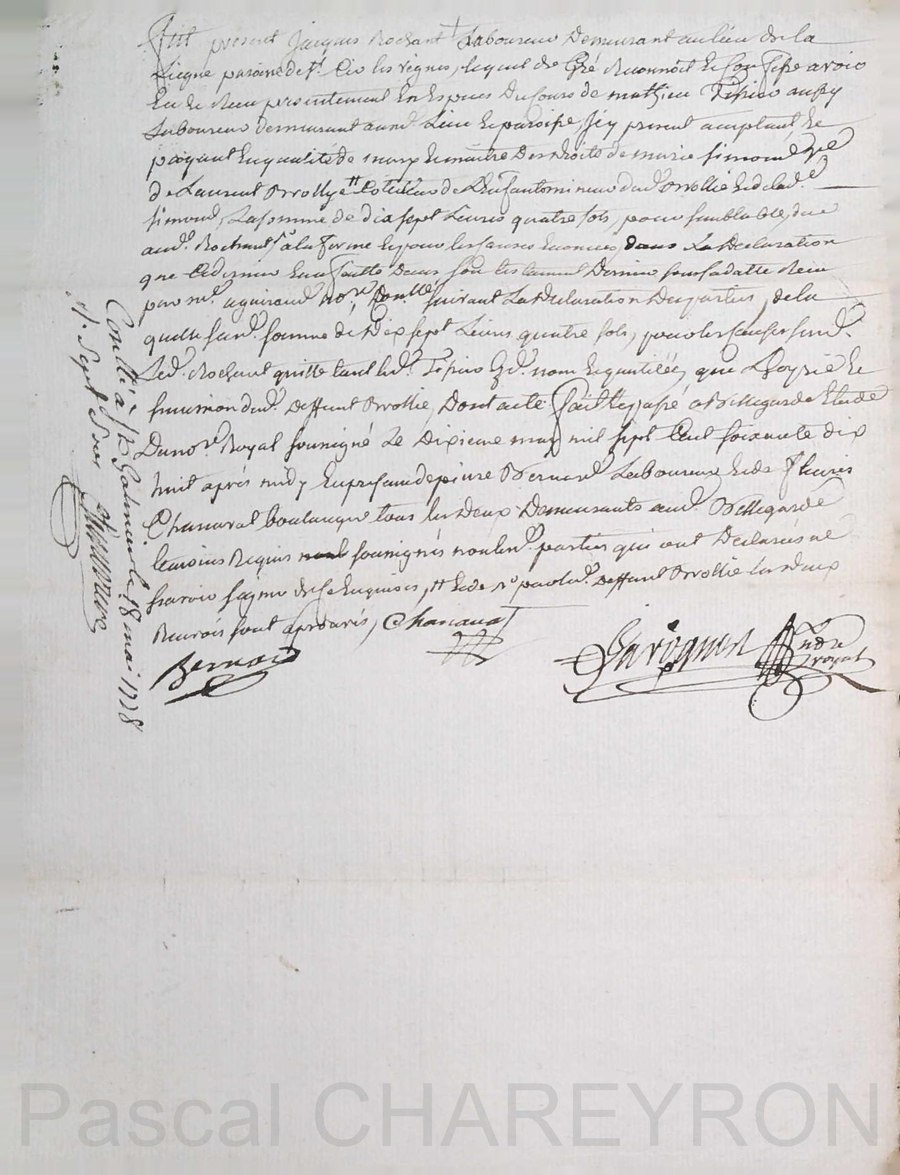 fut présent Jacques Rochant + Laboureur Demeurant au lieu de la
Liegue paroisse de St. Cir les vignes, lequel de Gré Reconnoit et Confesse avoir
Eu et Reçu presentement En Especes Du Cours de mathieu Tissier aussy
Laboureur demeurant aud. Lieu et paroisse, Icy present acceptant, et
payant En qualité de mary Et maitre Des droits de marie Simond Vve
de Laurent tt Et tutrice de L'Enfant mineur dud. Et de lad.
Simond, La somme de dix sept Livres quatre sols, pour semblable due
aud. Rochant, a la forme Et pour les causes Enoncées dans La Declaration
que Ce dernier En a faitte Dans son testament Dernier sous sa datte Reçu
par me. aguiraud nore. suivant La Declaration Des parties, de la
quelle susd. somme de Dix sept Livres quatre sols, pour les causes susd.
Led. Rochant quitte tant led. Tissier Qd. nom Et qualitée, que L'hoyrie Et
succession dud. Deffunt Dont acte fait Et passé a Bellegarde Etude
Du nore. Royal soussigné Le Dixieme may mil sept Cent soixante dix
huit après midy En présence de pierre Bernard Laboureur Et de fleuris
Chanavat boulanger tous les deux Demeurants aud. Bellegarde
temoins Requis soussignés non lesd. parties qui ont Declarés ne
sçavoir signer de Ce Enquises, tt Et de
Renvois sont aprouvés, Chanavat
Bernard
ndre
royal
Contllé a St Galmier le 18 mai 1778
R. sept sous
Pascal CHAREYRON